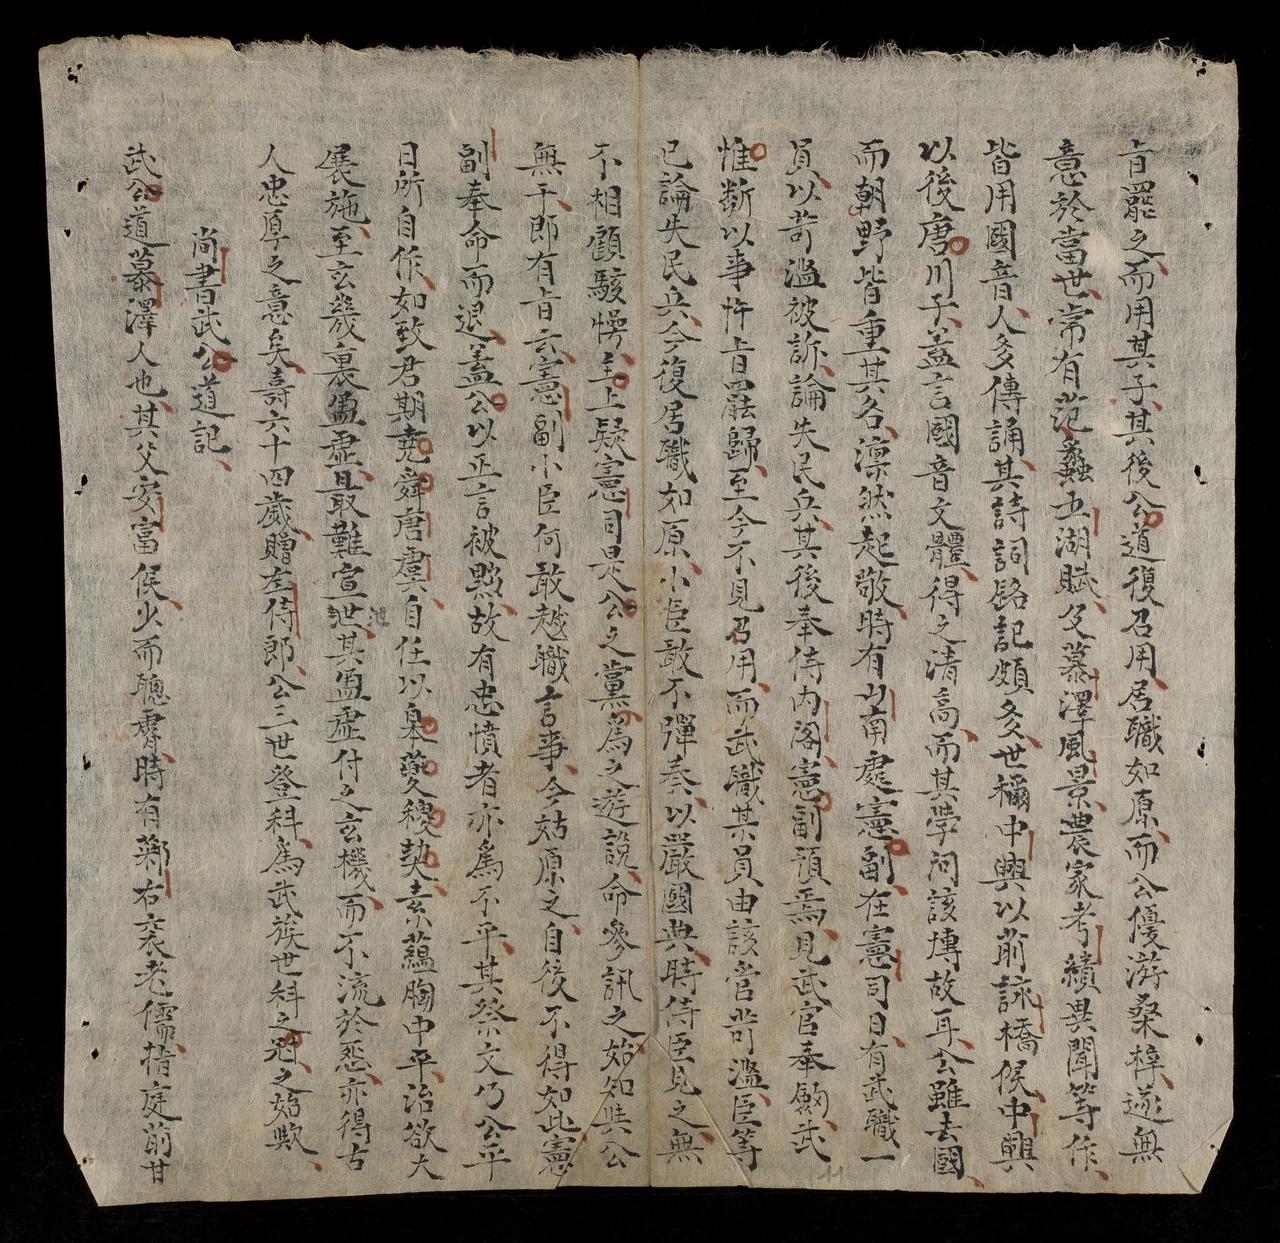 旨罷之而用其子其後公道復召用居職如原而公優游桑梓遂無
意於當世常有范蠡五湖賦及慕澤風景農家考績異聞等作
皆用國音人多傳誦其詩詞銘記頗多世稱中興以前詠橋侯中興
以後唐川子蓋言國音文體得之清高而其學問該博故耳公雖去國
而朝野皆重其名凛然起敬時有山南處憲副在憲司日有武職一
員以苛濫被訴論失民兵其後奉侍內閣憲副預焉見武官奉勑武
惟斷以事忤旨罷歸至今不見召用而武職某員由該官苛濫臣等
已論失民兵今復居職如原小臣敢不彈奏以嚴國典時侍臣見之無
不相顧駭愕主上疑憲司是公之黨為之遊說命參訊之始知與公
無干即有旨云憲副小臣何敢越職言事今姑原之自後不得如此憲
副奉命而退蓋公以正言被黜故有忠憤者亦為不平其祭文乃公平
日所自作如致君期堯舜唐虞自任以皋夔稷契素蘊胸中平治欲大
展施至玄幾裏盈虛且最難宣泄其盈虛付之玄機而不流於怨亦得古
人忠厚之意矣壽六十四歲贈左侍郎公三世登科為武族世科之冠之始歟
尚書武公道記
武公道慕澤人也其父安富侯少而聰睿時有鄰右老儒揹庭前甘